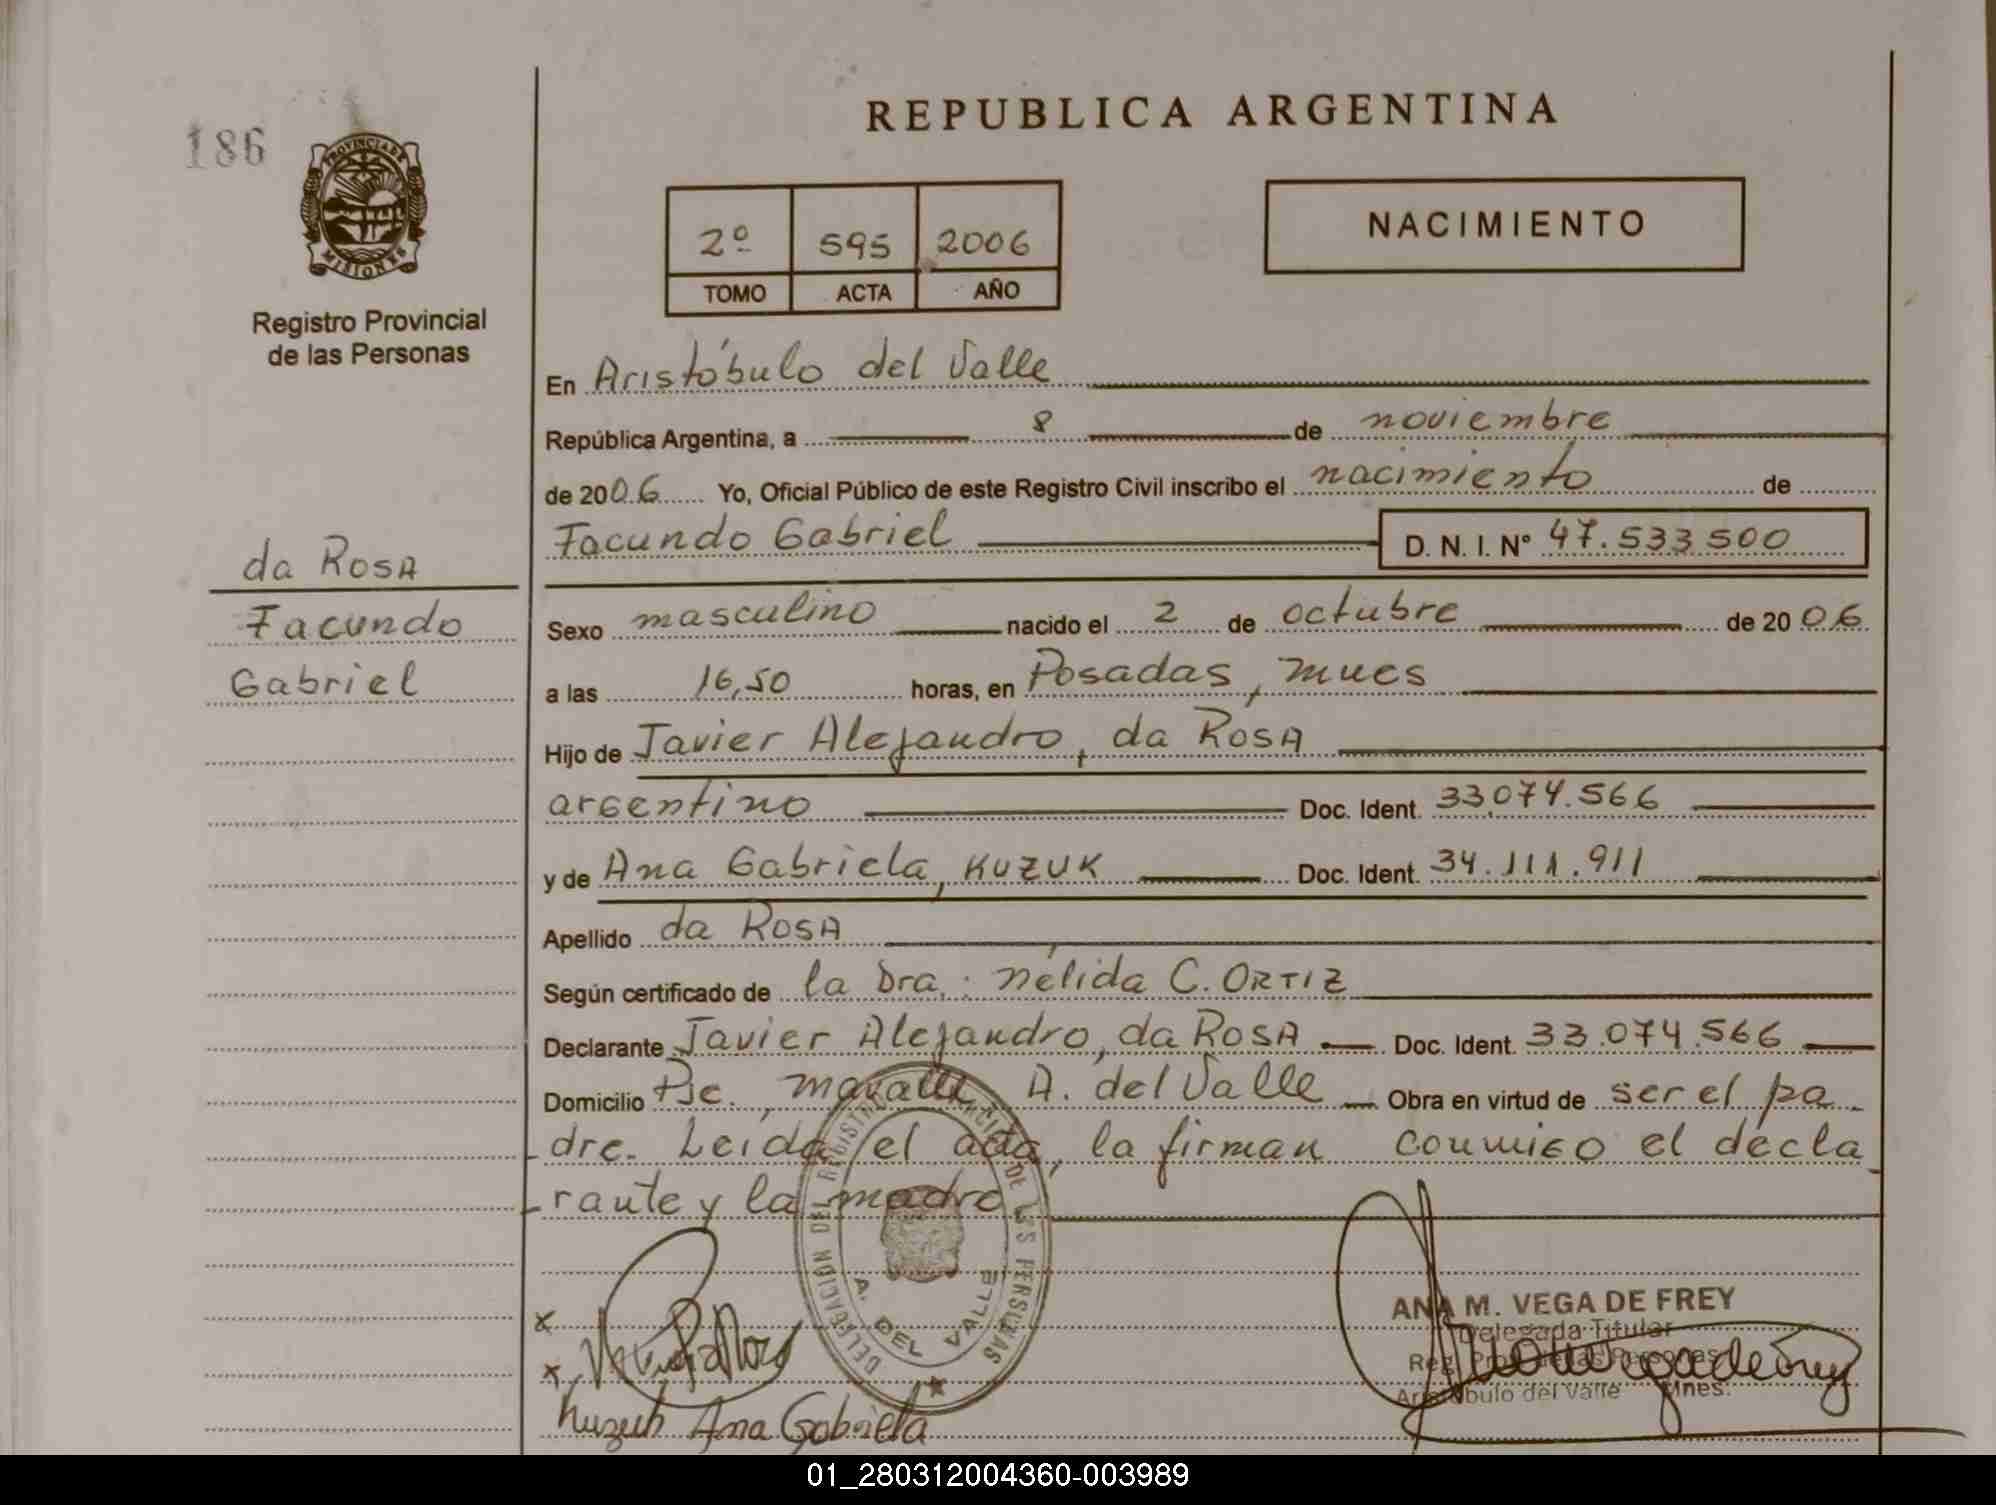 186
PROVINCIA DE
MISIONES
Registro Provincial
de las Personas
da Rosa
Facundo
Gabriel
REPUBLICA ARGENTINA
2º 595 2006
TOMO ACTA AÑO
NACIMIENTO
En Aristóbulo del Valle
República Argentina, a 8 de noviembre
de 2006 Yo, Oficial Público de este Registro Civil inscribo el nacimiento de
Facundo Gabriel D. N. I. Nº 47.533.500
Sexo masculino nacido el 2 de octubre de 2006
a las 16,50 horas, en Posadas, mnes
Hijo de Javier Alejandro, da Rosa
argentino Doc. Ident. 33.074.566
y de Ana Gabriela, KUZUK Doc. Ident. 34.111.911
Apellido da Rosa
Según certificado de la Dra. Nélida C. ORTIZ
Declarante Javier Alejandro, da Rosa Doc. Ident. 33.074.566
Domicilio Pje. A. del Valle Obra en virtud de ser el pa
dre. Leída el acta, la firman conmigo el decla
rante y la madre
DELEGACIÓN DEL REGISTRO PROVINCIAL DE LAS PERSONAS
A. DEL VALLE
ANA M. VEGA DE FREY
Delegada Titular
Reg. Prov. de las Personas
Aristóbulo del Valle Mnes.
Kuzuk Ana Gabriela
01_280312004360-003989